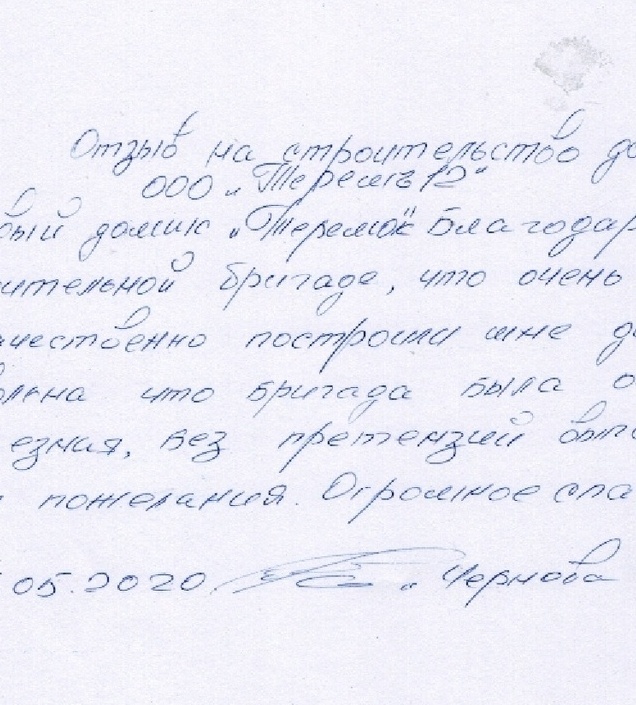 Отзыв на строительство до
ООО „Теремъ 12"
овый домик „Теремок" Благодар
ительной бригаде, что очень
ачественно построили мне до
ольна что бригада была о
езная, без претензий вып
пожелания. Огромное спа
05.2020 Чернова